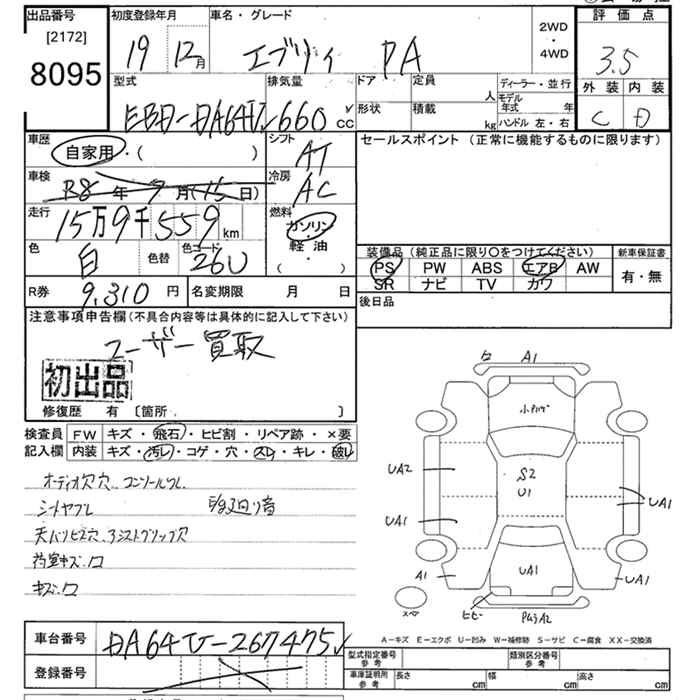 出品番号
[2172]
8095
初度登録年月
19 12月
車名・グレード
エブリィ PA
2WD
・
4WD
評価点
3.5
外装 内装
C D
型式
EBD-DA64V
排気量
660 cc
ドア
形状
定員
人
積載
kg
ディーラー・並行
モデル
年式 年
ハンドル 左・右
車歴
自家用・( )
シフト
AT
セールスポイント (正常に機能するものに限ります)
車検
R8 年 9 月(15日)
冷房
AC
走行
15万9千559 km
燃料
ガソリン
・
軽油
( )
色
白
色替
色コード
26U
装備品(純正品に限り○をつけてください)
PS PW ABS エアB AW
SR ナビ TV カワ
新車保証書
有・無
R券 9,310 円
名変期限 月 日
後日品
注意事項申告欄(不具合内容等は具体的に記入して下さい)
ユーザー買取
初出品
修復歴 有 〔箇所 〕
検査員
記入欄
FW キズ・飛石・ヒビ割・リペア跡・×要
内装 キズ・汚レ・コゲ・穴・スレ・キレ・破レ
オーディオ欠穴 コンソールワレ
シートヤブレ
天バリビス穴、アシストグリップ欠
荷室キズ・凹
キズ・凹
A1
小キズ
UA2
S2
U1
UA1
UA1
UA1
A1
UA1
ヒビ
A2
スペア
A-キズ E-エクボ U-凹み W-補修跡 S-サビ C-腐食 XX-交換済
車台番号 DA64V-267475
登録番号
型式指定番号
参考
類別区分番号
参考
車庫証明用
参考
長さ cm
幅 cm
高さ cm